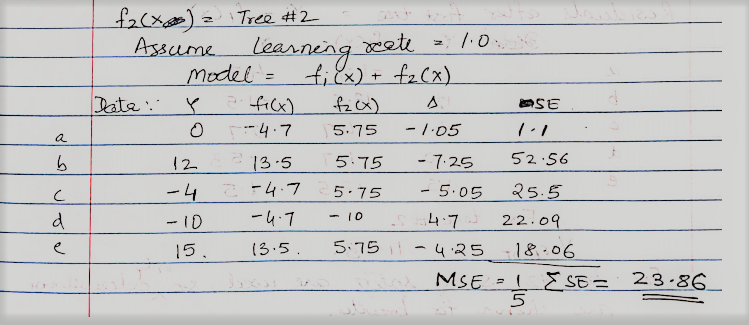 f2(x) = Tree #2
Assume learning rate = 1.0
Model = f1(x) + f2(x)
Data: Y f1(x) f2(x) Δ SE
a 0 -4.7 5.75 -1.05 1.1
b 12 13.5 5.75 -7.25 52.56
c -4 -4.7 5.75 -5.05 25.5
d -10 -4.7 -10 4.7 22.09
e 15. 13.5. 5.75 -4.25 18.06
MSE = 1/5 ΣSE = 23.86